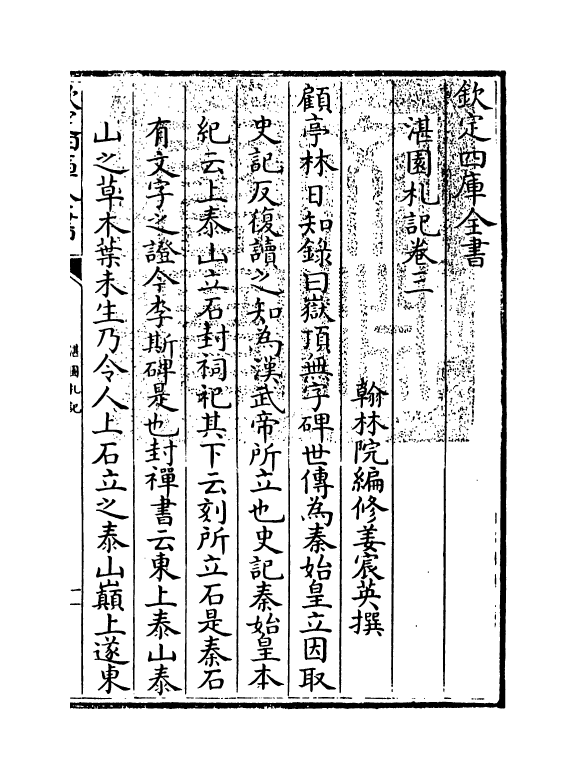 欽定四庫全書
湛園札記卷二
翰林院編修姜宸英撰
顧亭林日知錄曰嶽頂無字碑世傳為秦始皇立因取
史記反復讀之知為漢武帝所立也史記秦始皇本
紀云上泰山立石封祠祀其下云刻所立石是秦石
有文字之證今李斯碑是也封禪書云東上泰山泰
山之草木葉未生乃令人上石立之泰山巔上遂東
湛園札記